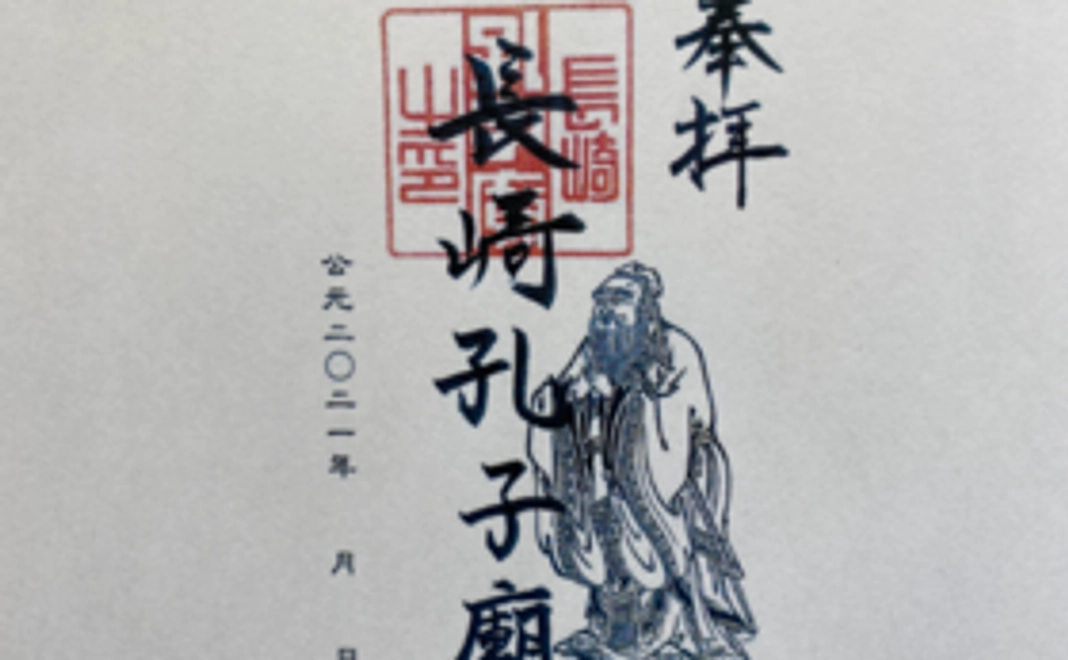 奉拝
長崎孔子廟
長崎
孔子廟
之印
公元二〇二一年 月 日